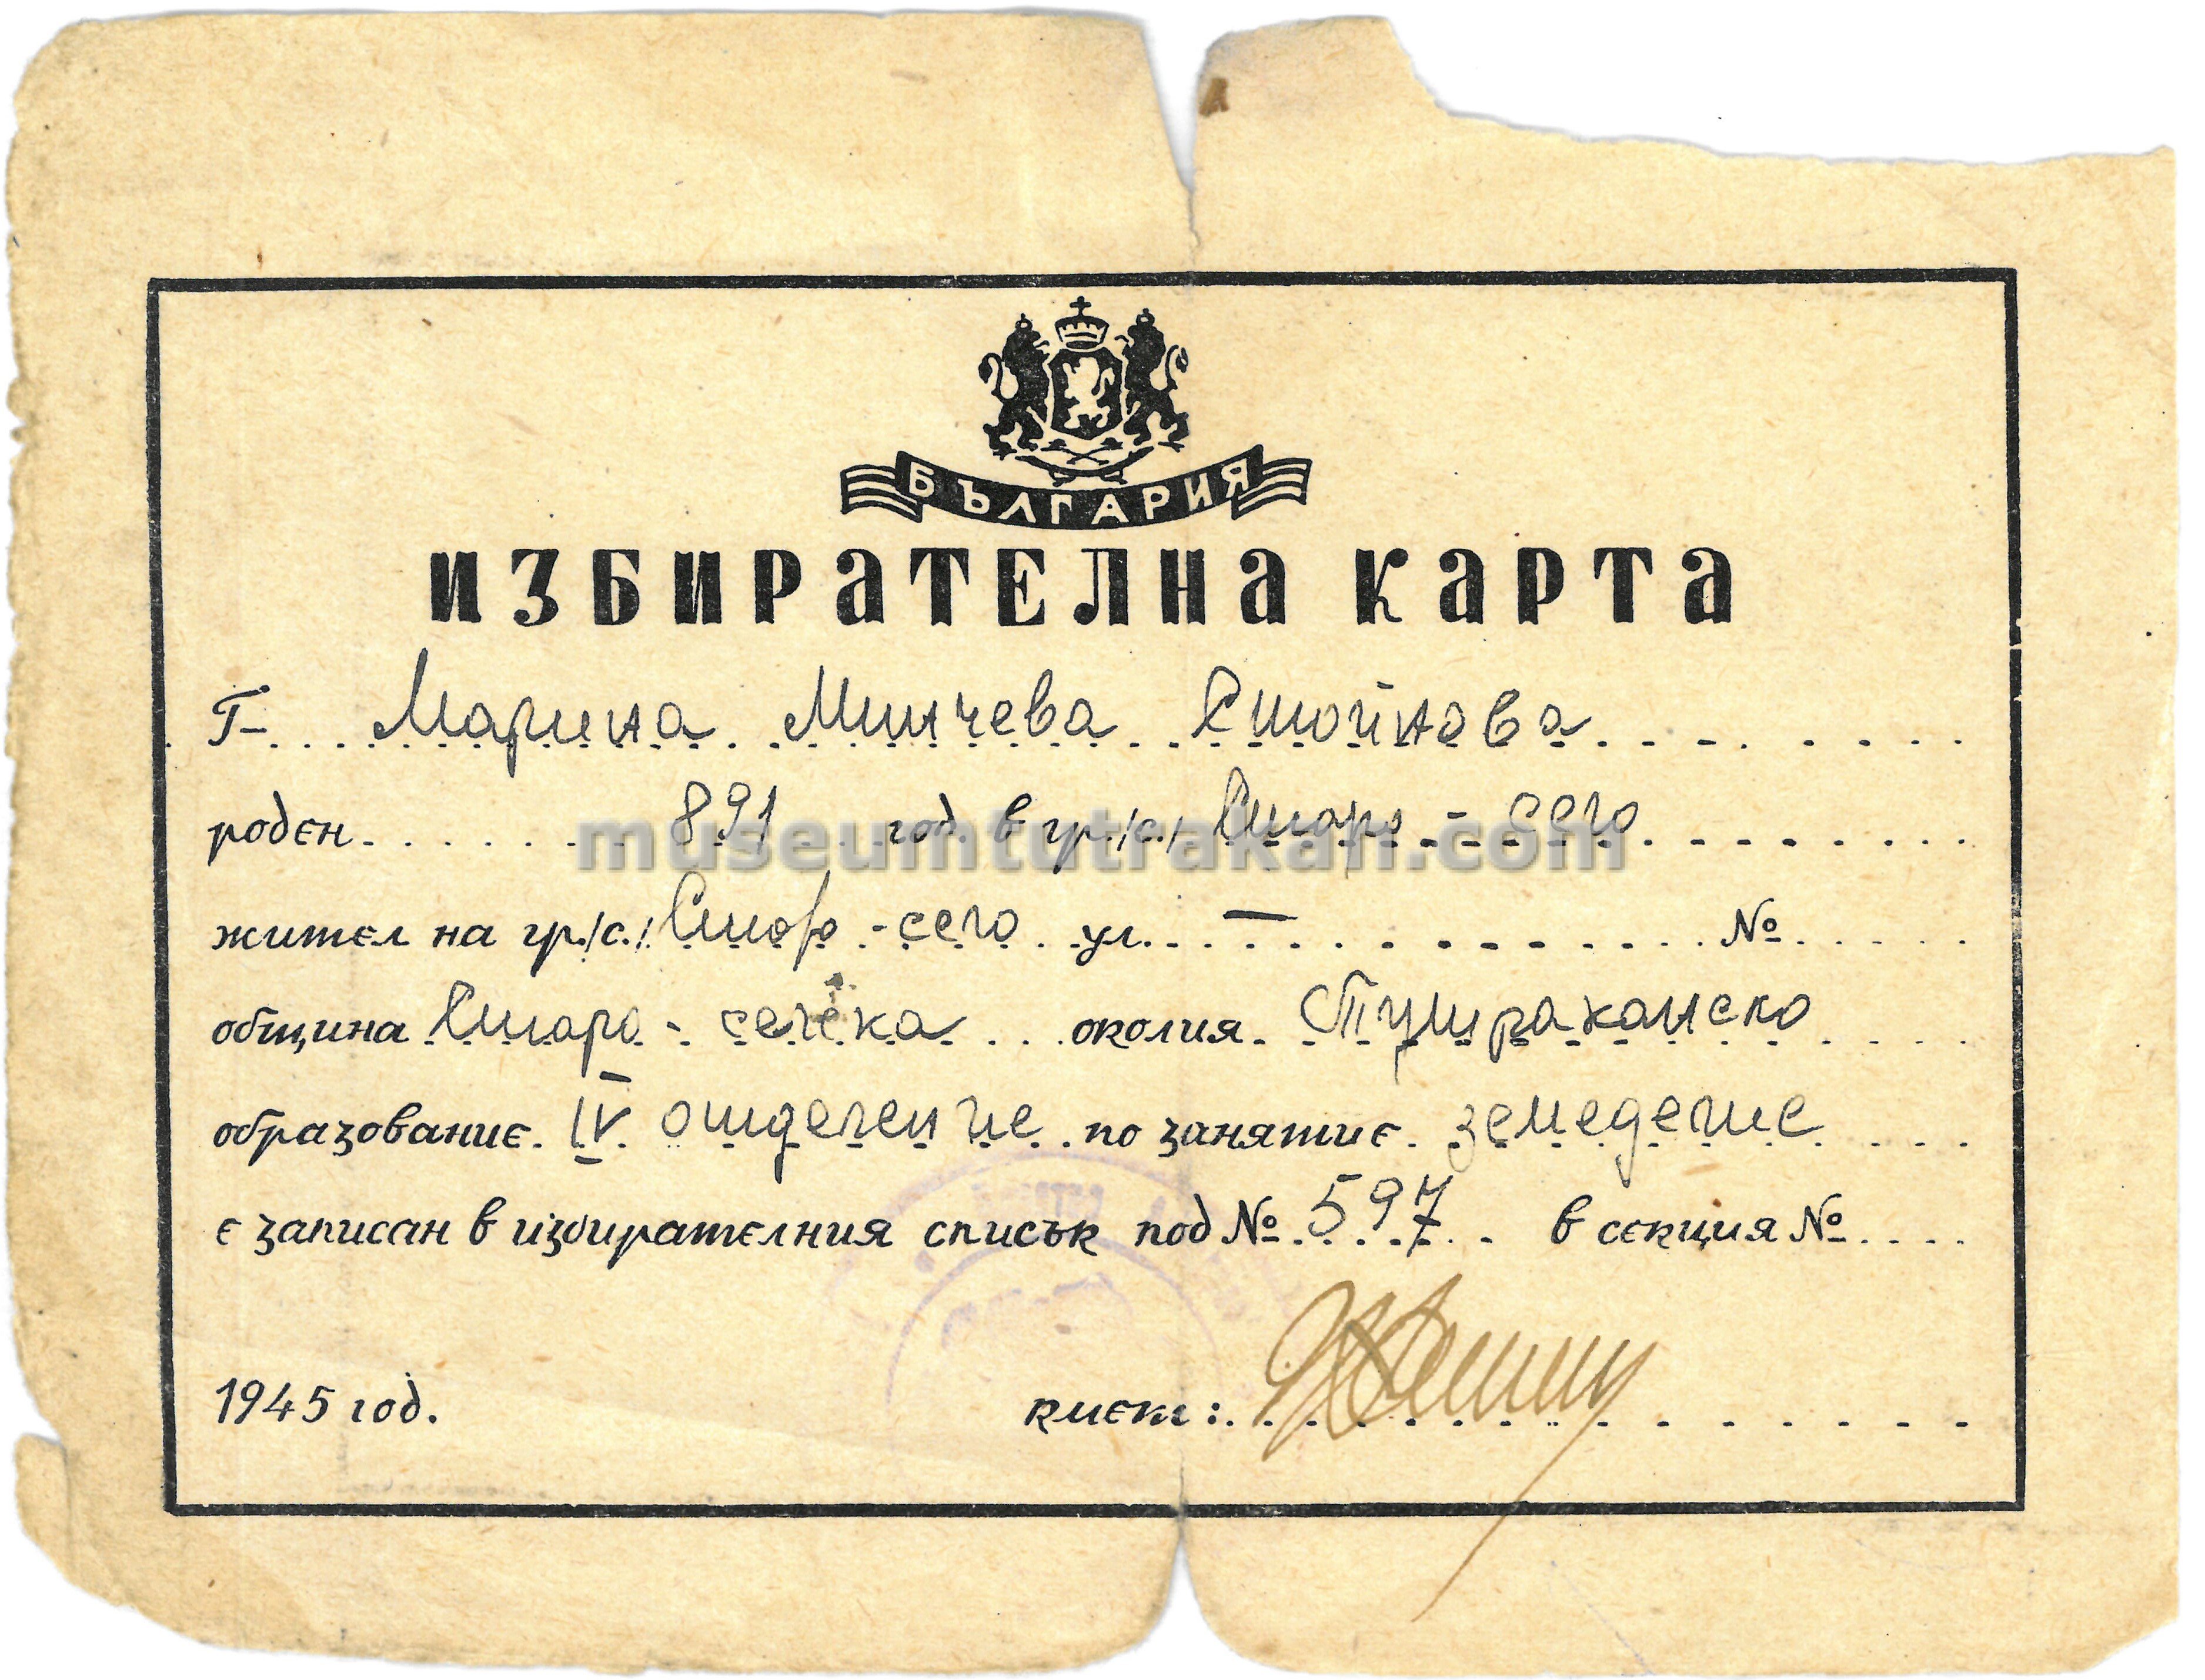 БЪЛГАРИЯ
ИЗБИРАТЕЛНА КАРТА
Г- Марина Минчева Стойнова
роден 891 год. в гр./с./ Старо - село
museumtutrakan.com
жител на гр./с./ Старо - село ул. — №
община Старо - селска околия Тутраканско
образование IV отделение по занятие земеделие
е записан в избирателния списък под № 597 в секция №
1945 год. кмет: